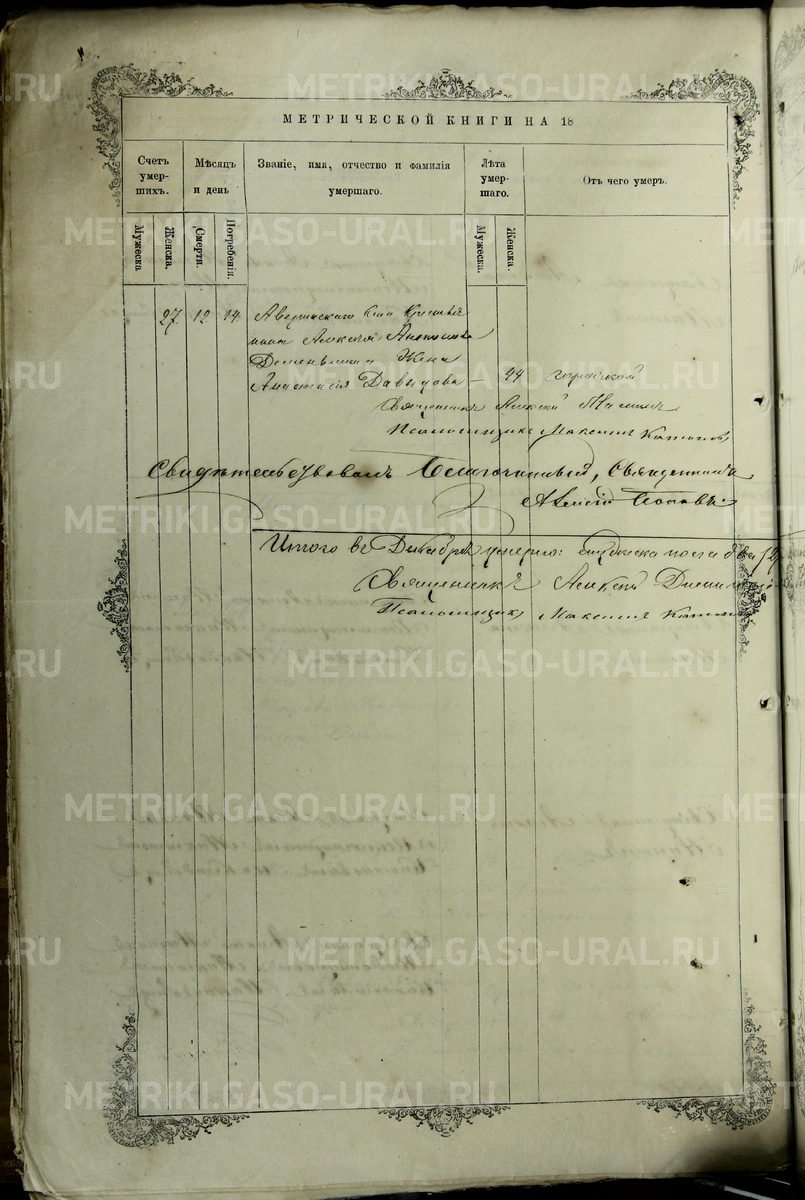 МЕТРИЧЕСКОЙ КНИГИ НА 18
Счетъ умер-шихъ.
Мѣсяцъ и день
Званіе, имя, отчество и фамилія умершаго.
Лѣта умер-шаго.
Отъ чего умеръ.
Мужеска
Женска.
Смерти.
Погребенія.
Мужеска.
Женска.
27 12 14 Аверинскаго Села Крестья
нина Алексѣя Антонова
Жена
Анастасія Давыдова — 44 горячкой
Священникъ Алексѣй
Псаломщикъ Максимъ
Свидѣтельствовалъ Благочинный, Священникъ
Алексій Поповъ.
Итого въ Декабрѣ умерло: женска пола два /2/
Священникъ Алексѣй
Псаломщикъ Максимъ
METRIKI.GASO-URAL.RU